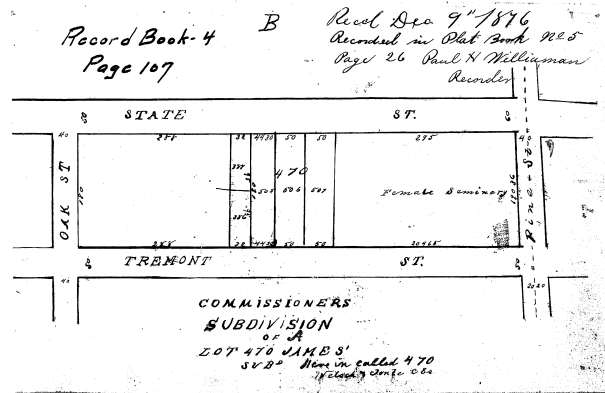 Record Book-4
Page 107
B
Recd Dec 9" 1876
Recorded in Plat Book No 5
Page 26 Paul H Williaman
Recorder
STATE ST.
60
60
40
288
32
4430
50
50
295
40
OAK ST
180
337
470
180
505
506
507
Female Seminary
180 36
Pine St
336
288
32
4430
50
50
20465
60
TREMONT ST.
60
40
2020
COMMISSIONERS
SUBDIVISION
OF A
LOT 470 JAMES'
SUBD Here in called 470